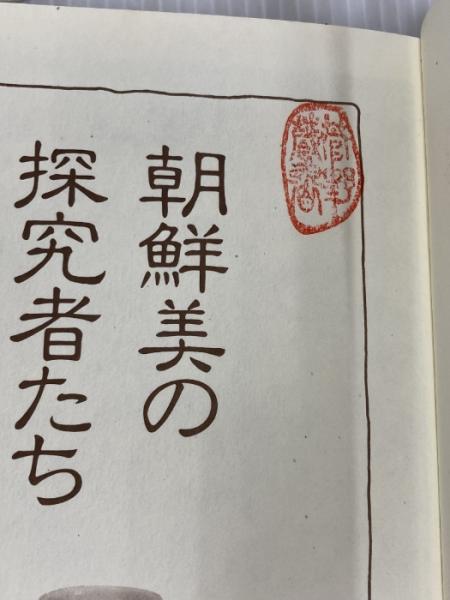 朝鮮美の
探究者たち